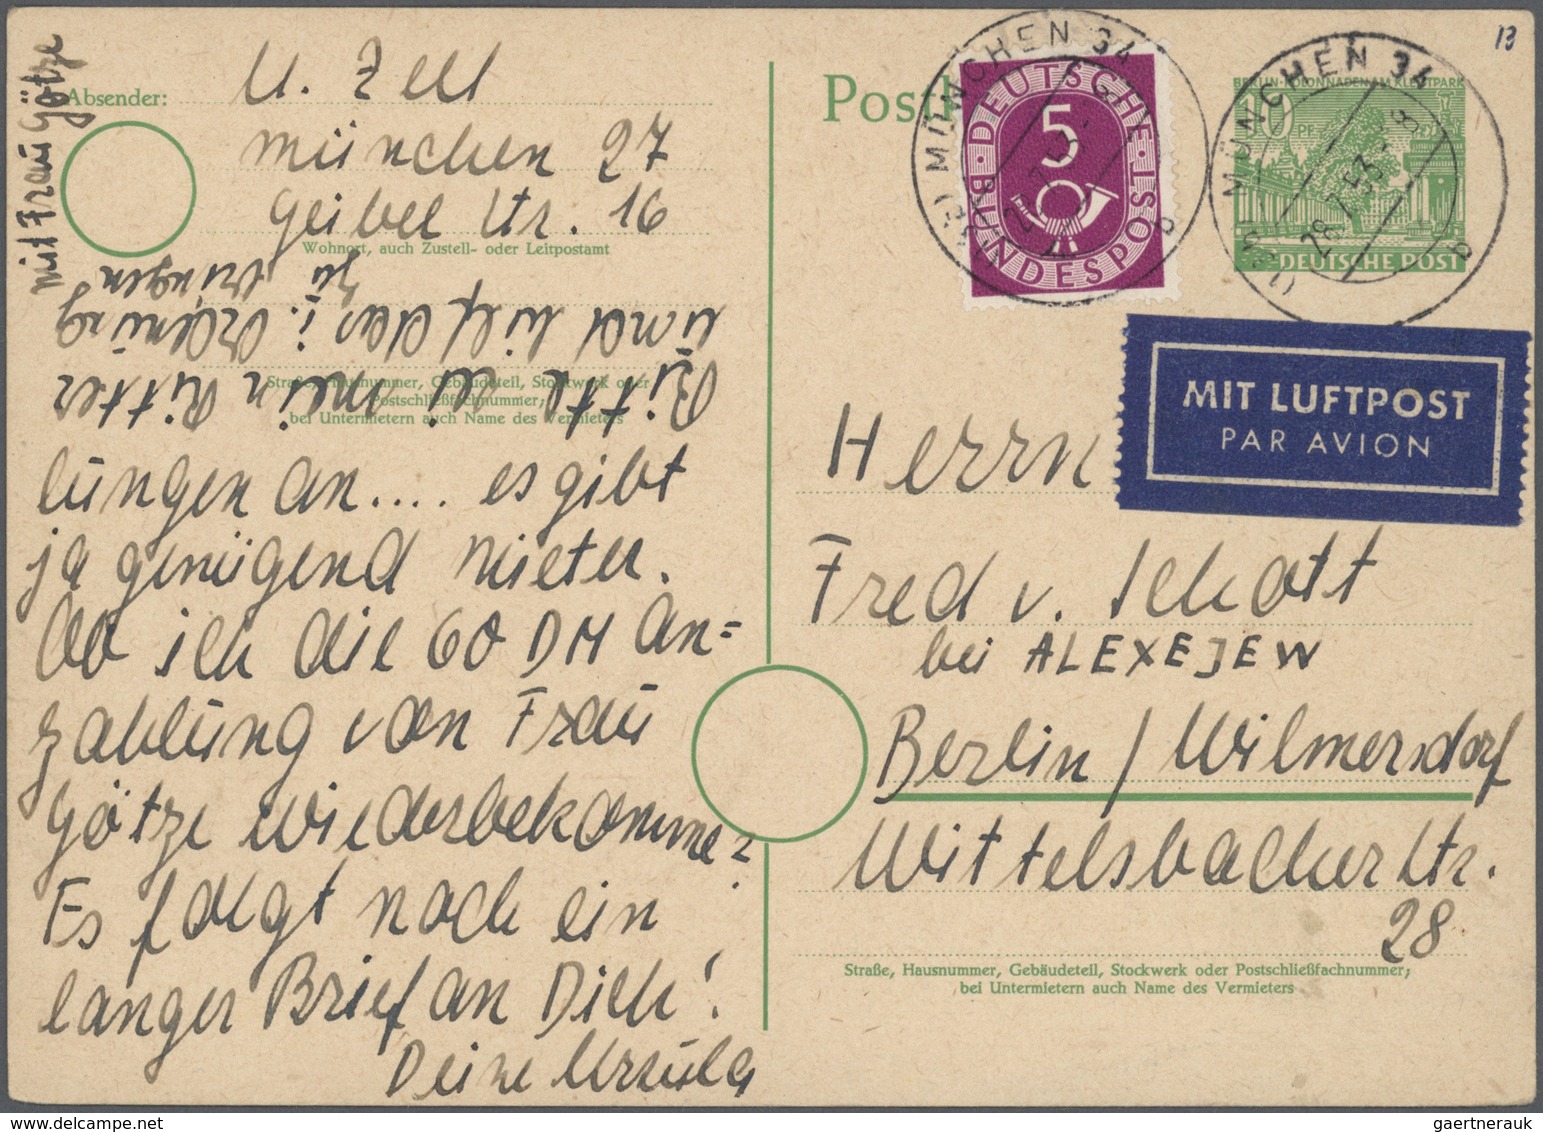 Absender: U. Zell
München 27
Geibel Str. 16
Wohnort, auch Zustell- oder Leitpostamt
Straße, Hausnummer, Gebäudeteil, Stockwerk oder
Postschließfachnummer;
bei Untermietern auch Name des Vermieters
lungen an.... es gibt
ja genügend Mieter.
Ob ich die 60 DM An=
zahlung von Frau
Götze wiederbekomme?
Es folgt noch ein
langer Brief an Dich!
Deine Ursula
Bitte sei mein Ritter
und hilf das i. Ordnung
zu bringen
mit Frau Götze
13
MÜNCHEN 34
b
DEUTSCHE
5
BUNDESPOST
MÜNCHEN 34
28.7.53.-8
b
10 PF
DEUTSCHE POST
MIT LUFTPOST
PAR AVION
Herrn
Fred v. Schott
bei ALEXEJEW
Berlin / Wilmersdorf
Wittelsbacher Str.
28
Straße, Hausnummer, Gebäudeteil, Stockwerk oder Postschließfachnummer;
bei Untermietern auch Name des Vermieters
gaertnerauk @ delcampe.net